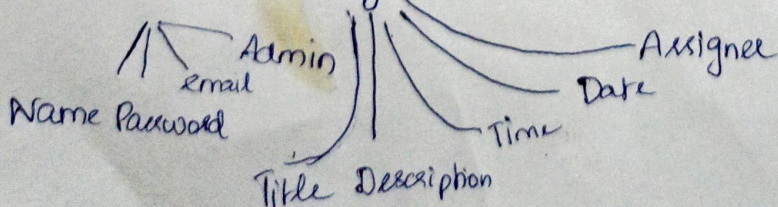 Admin
Assignee
email
Date
Name Password
Time
Title Description